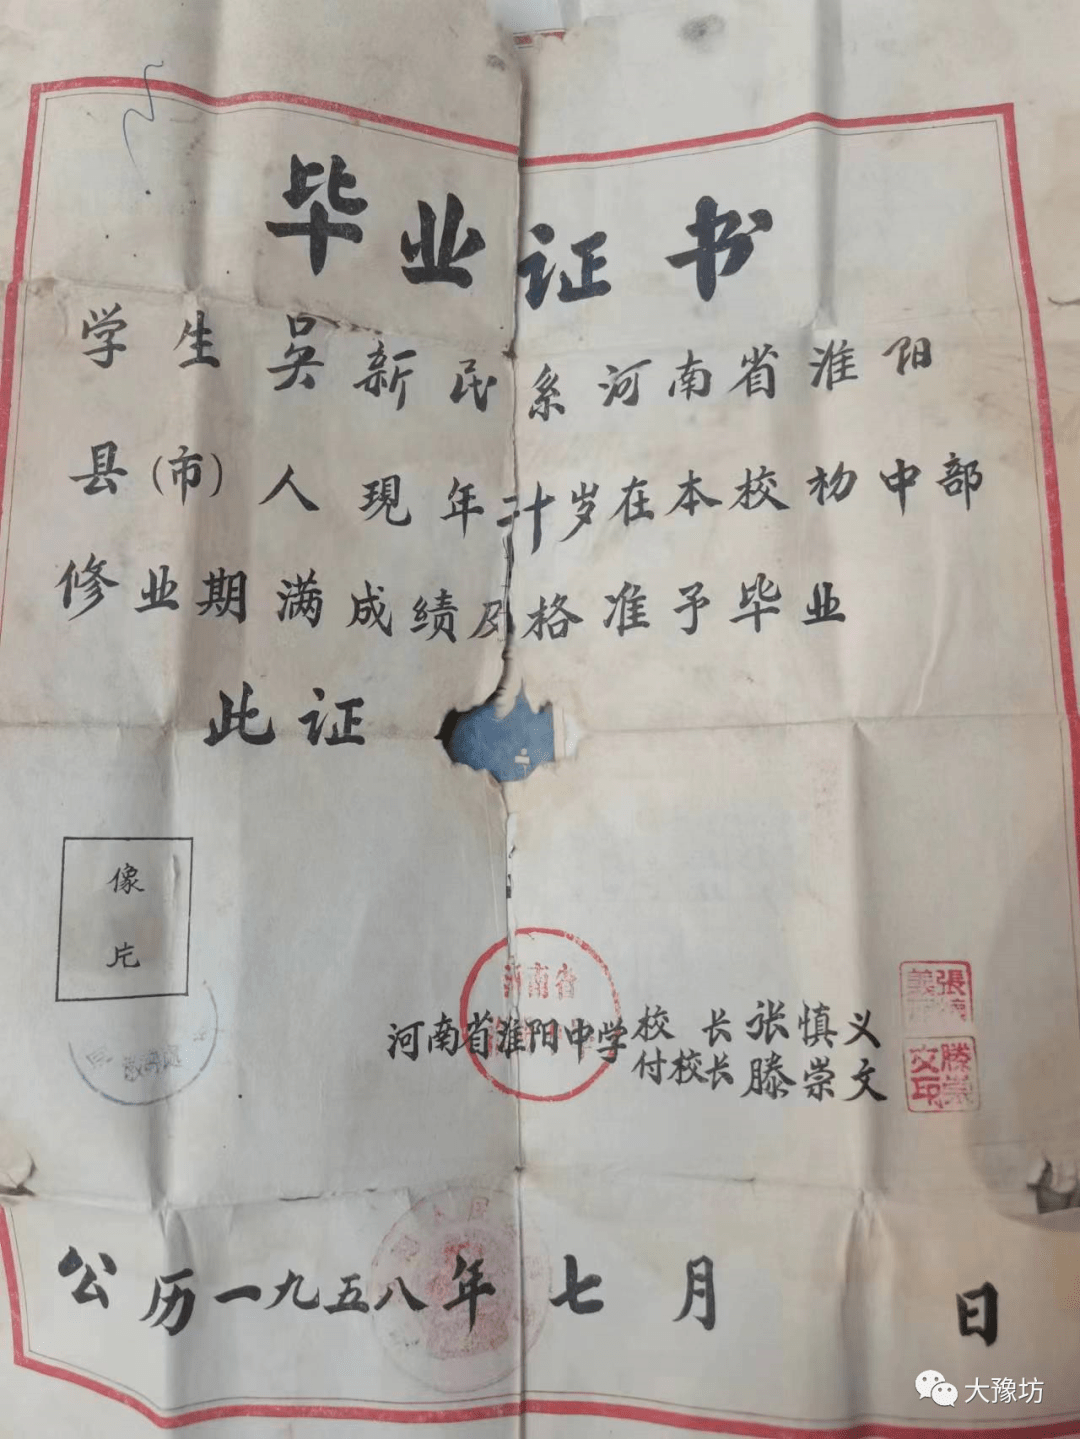 毕业证书
学生吴新民系河南省淮阳
县(市)人現年二十岁在本校初中部
修业期满成绩及格准予毕业
此证
像
片
河南省
河南省淮阳中学校长张慎义
付校长滕崇文
張慎
義印
滕崇
文印
公历一九五八年七月 日
大豫坊